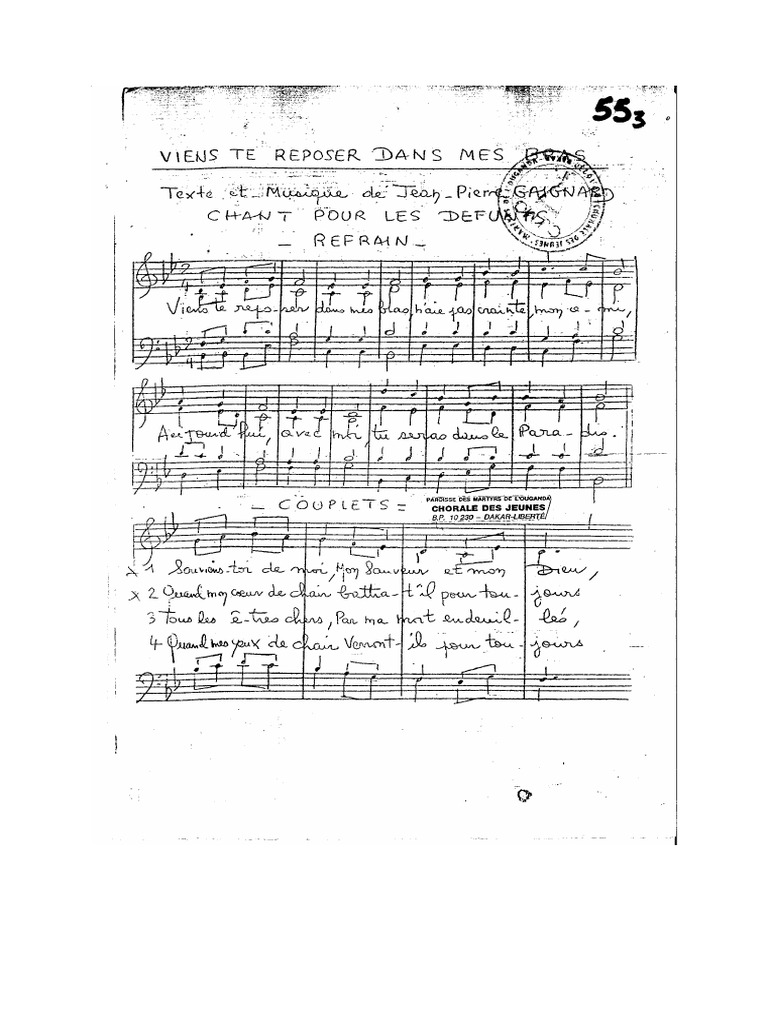 55 3
VIENS TE REPOSER DANS MES BRAS
Texte et Musique de Jean-Pierre GAIGNARD
CHANT POUR LES DEFUNTS
- REFRAIN -
2
4
Viens te repo-ser dans mes bras, n'aie pas crainte, mon a-mi,
2
4
Aujourd'hui, avec moi, tu seras dans le Para-dis.
- COUPLETS =
PAROISSE DES MARTYRS DE L'OUGANDA
CHORALE DES JEUNES
B.P. 10 230 – DAKAR-LIBERTÉ
x 1 Souviens-toi de moi, Mon Sauveur et mon Dieu,
x 2 Quand mon cœur de chair battra-t'il pour tou- jours
3 Tous les ê-tres chers, Par ma mort endeuil- lés,
4 Quand mes yeux de chair Verront-ils pour tou- jours